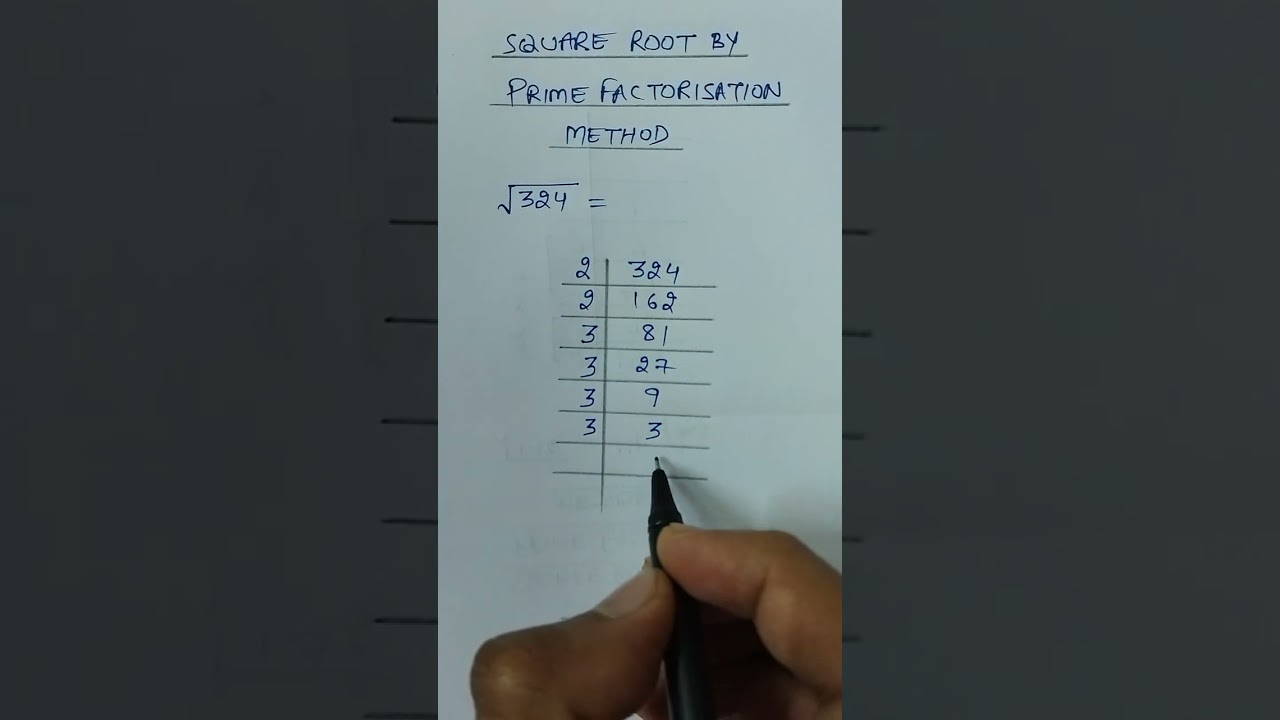 SQUARE ROOT BY
PRIME FACTORISATION
METHOD
√324 =
2 | 324
2 | 162
3 | 81
3 | 27
3 | 9
3 | 3